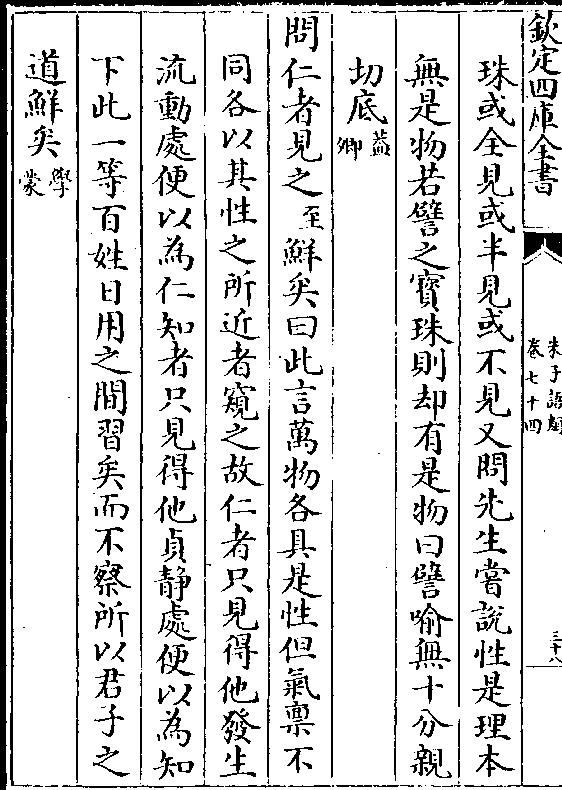 欽定四庫全書
朱子語類
卷七十四
三十八
珠或全見或半見或不見又問先生嘗說性是理本
無是物若譬之寶珠則却有是物曰譬喻無十分親
切底
蓋卿
問仁者見之至鮮矣曰此言萬物各具是性但氣稟不
同各以其性之所近者窺之故仁者只見得他發生
流動處便以為仁知者只見得他貞靜處便以為知
下此一等百姓日用之間習矣而不察所以君子之
道鮮矣
學蒙